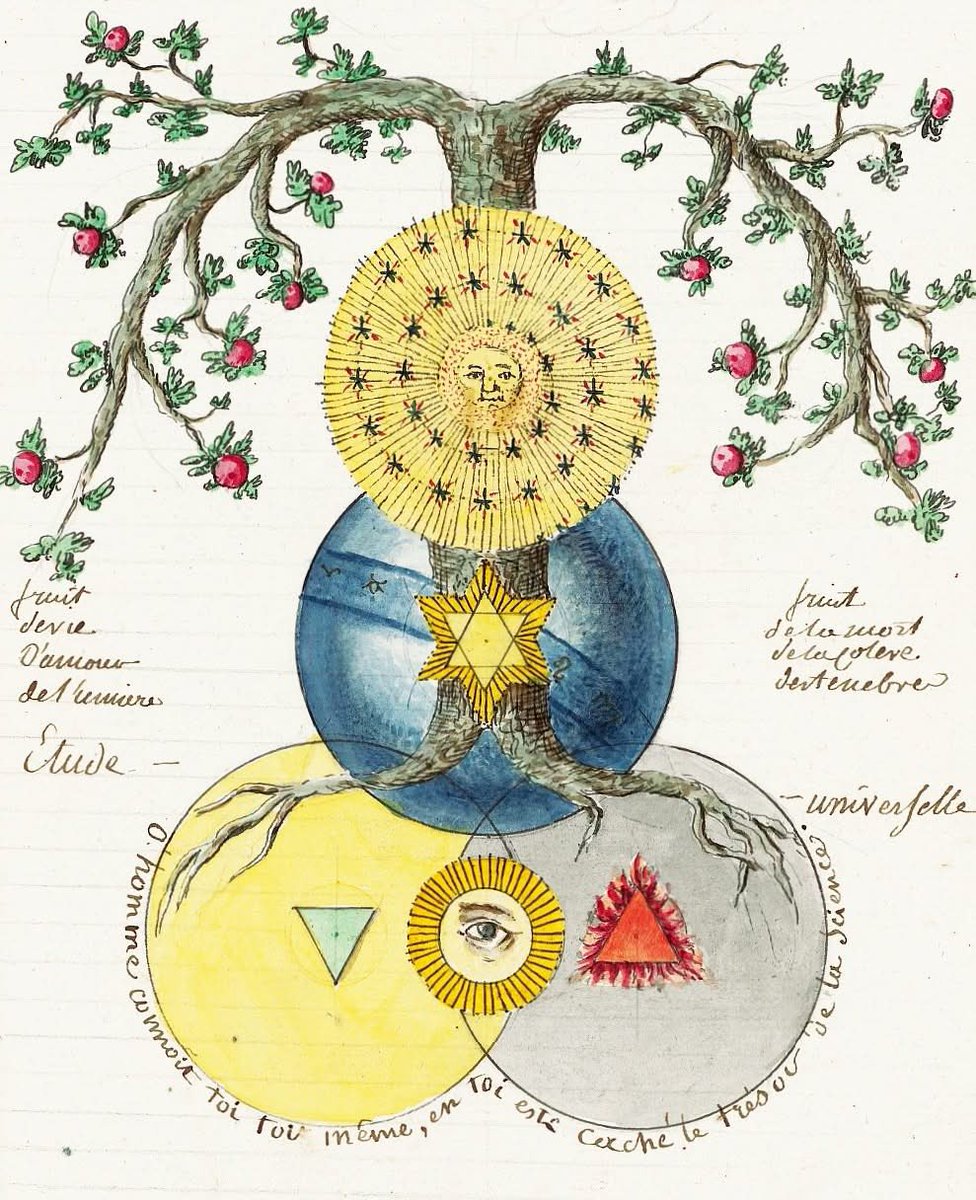 fruit
de vie
D'amour
de lumiere
fruit
de la mort
de la colere
des tenebres
Etude —
— universelle
O. homme connoit toi toi même, en toi este caché le trésor de la science.